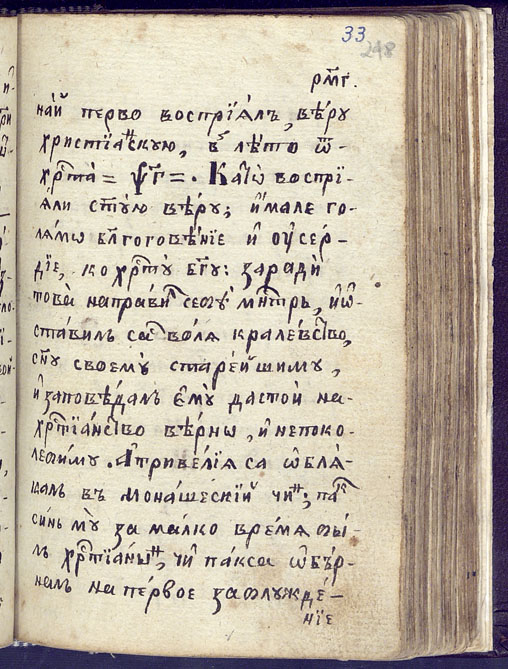 33
248
рм҃г.
най перво воспрїалъ, вѣру
христїаⷩскую, въ лѣто ѿ
хрⷭ҇та = ѱ҃г = . Каѡ воспрї-
яли ст҃ую вѣру; и имале го-
лямо бл҃гоговѣнїе и оусер-
дїе, ко хрⷭ҇ту бг҃у: заради
това направи
ставилъ са волѧ кралевство,
сн҃у своему старейшимꙋ,
и заповѣдалъ емꙋ да стои на-
хрⷭ҇тїанство вѣрны, и непоко-
лебиму. А требелїѧ са ѡблѧ-
калъ въ монашескїй чиⷩ; паⷦ
синъ мꙋ за малко времѧ бы-
лъ хрⷭ҇тїаныⷩ, чи пакса ѡбър-
налъ на первое заблужде-
нїе